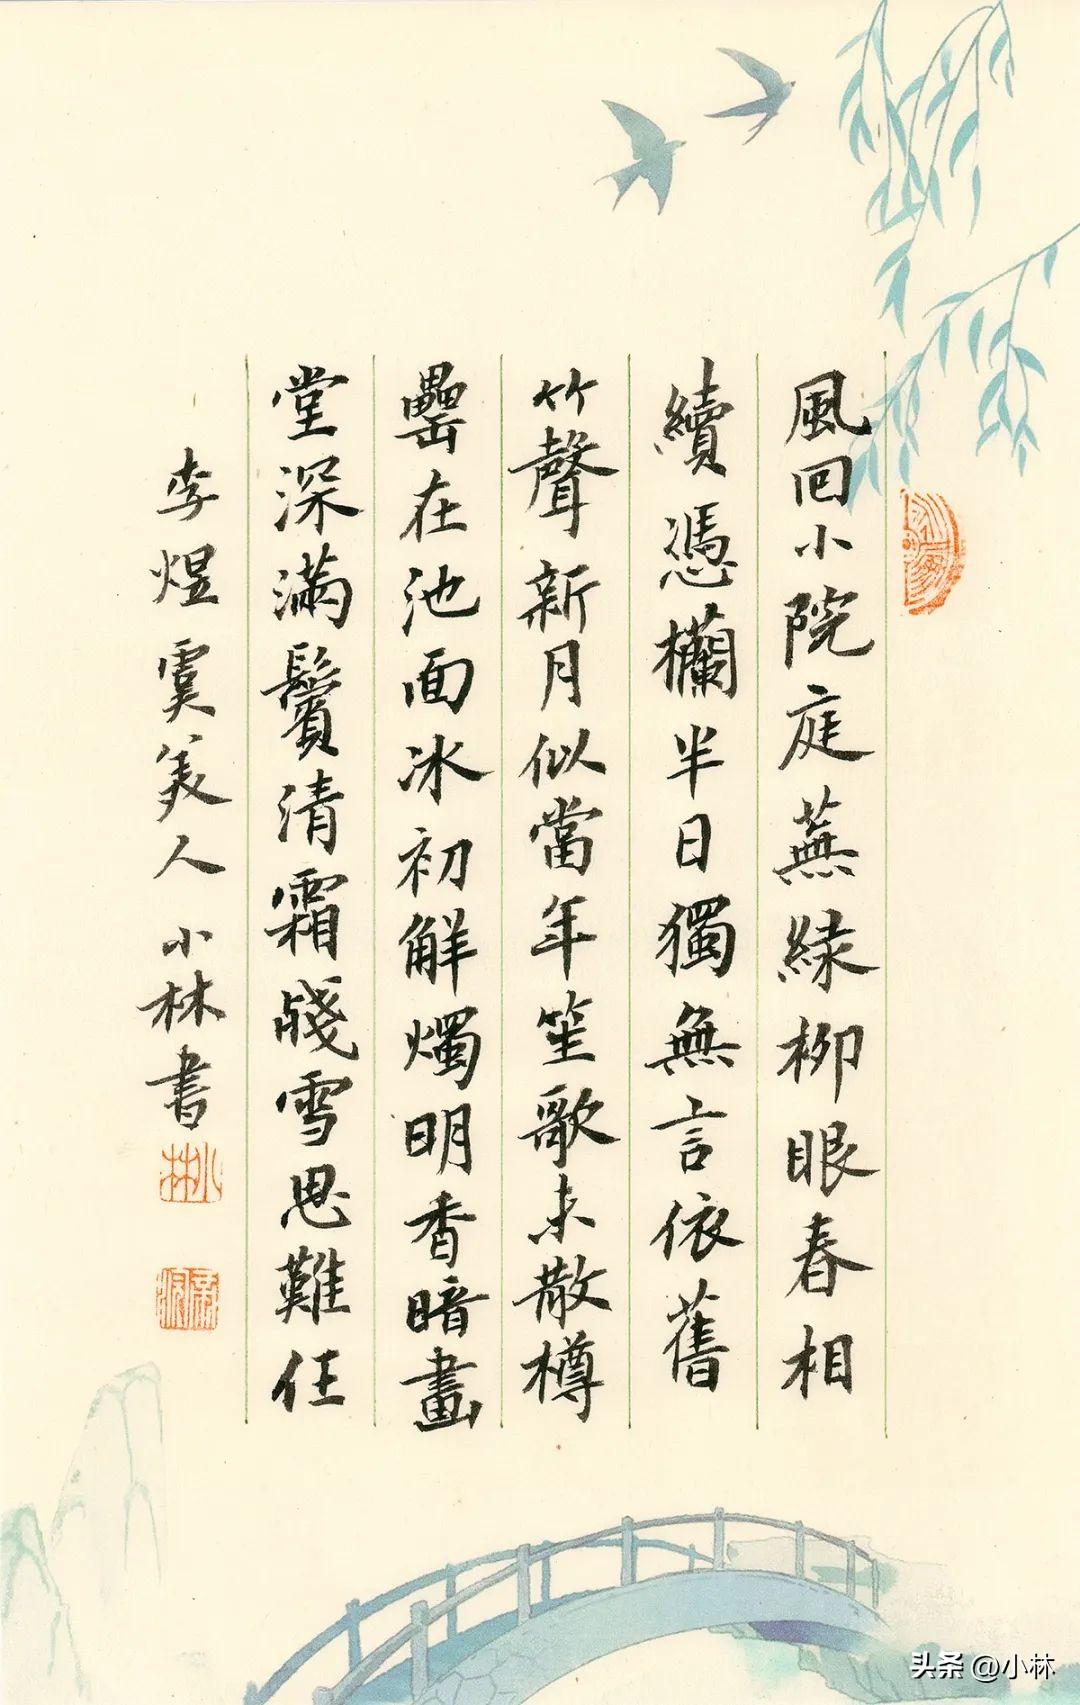 風回小院庭蕪綠柳眼春相
續憑欄半日獨無言依舊
竹聲新月似當年笙歌未散樽
罍在池面冰初解燭明香暗畫
堂深滿鬢清霜殘雪思難任
李煜虞美人 小林書
小林
头条 @小林